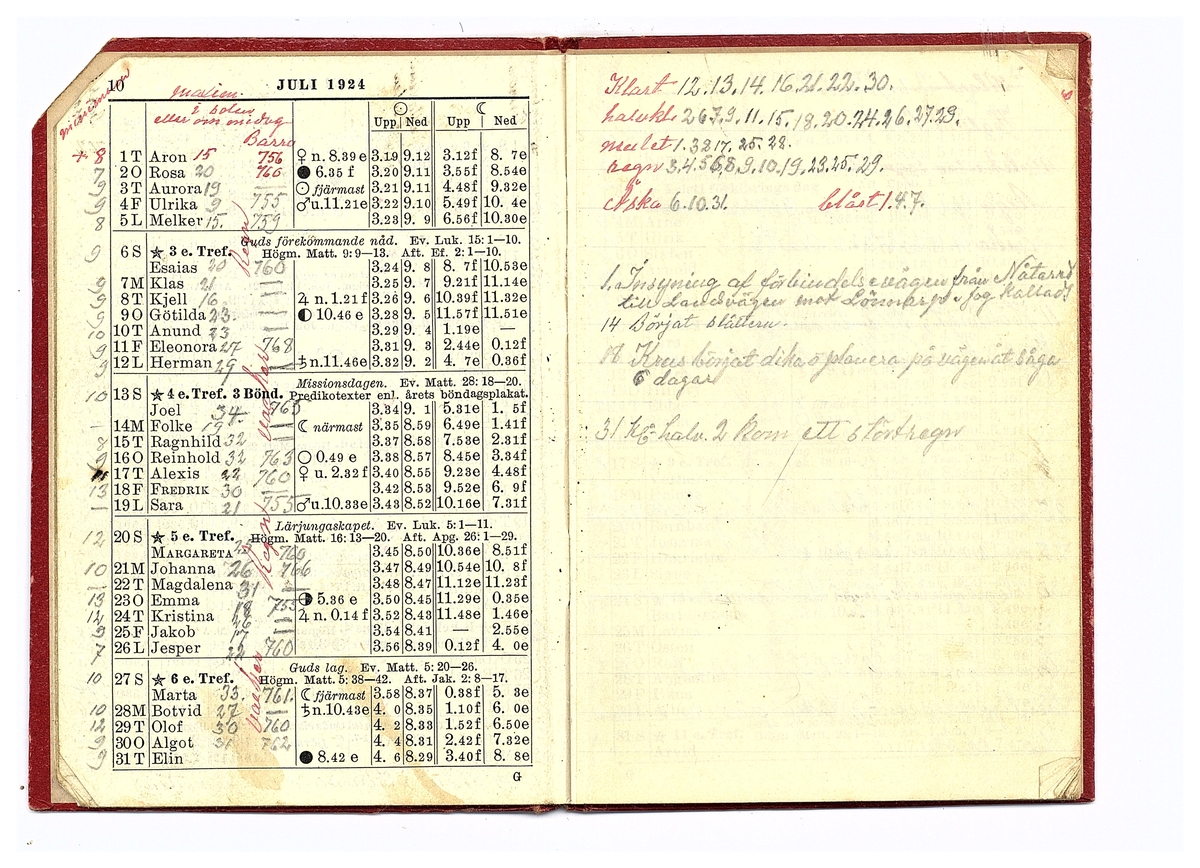 10 JULI 1924
maxim.
i solen
eller om midag
Barro
☉ ☾
Upp Ned Upp Ned
+ 8 1 T Aron 15 756 ♀ n. 8.39 e 3.19 9.12 3.12f 8. 7e
7 2 O Rosa 20 760 ● 6.35 f 3.20 9.11 3.55f 8.54e
9 3 T Aurora 19 — ☉ fjärmast 3.21 9.11 4.48f 9.32e
9 4 F Ulrika 9 755 ♂ u. 11.21e 3.22 9.10 5.49f 10. 4e
8 5 L Melker 15. 759 3.23 9. 9 6.56f 10.30e
Guds förekommande nåd. Ev. Luk. 15: 1—10.
9 6 S ★ 3 e. Tref. Högm. Matt. 9: 9—13. Aft. Ef. 2: 1—10.
Esaias 20 760 3.24 9. 8 8. 7f 10.53e
9 7 M Klas 21 — 3.25 9. 7 9.21f 11.14e
9 8 T Kjell 16 — ♃ n. 1.21 f 3.26 9. 6 10.39f 11.32e
9 9 O Götilda 23. — ◐ 10.46 e 3.28 9. 5 11.57f 11.51e
10 10 T Anund 23 — 3.29 9. 4 1.19e —
9 11 F Eleonora 27 768 3.31 9. 3 2.44e 0.12f
9 12 L Herman 29 — ♄ n. 11.46e 3.32 9. 2 4. 7e 0.36f
Missionsdagen. Ev. Matt. 28: 18—20.
10 13 S ★ 4 e. Tref. 3 Bönd. Predikotexter enl. årets böndagsplakat.
Joel 34 765 3.34 9. 1 5.31e 1. 5f
— 14 M Folke 19 — ☾ närmast 3.35 8.59 6.49e 1.41f
8 15 T Ragnhild 32 — 3.37 8.58 7.53e 2.31f
9 16 O Reinhold 32 763 ○ 0.49 e 3.38 8.57 8.45e 3.34f
11 17 T Alexis 22 760 ♀ u. 2.32 f 3.40 8.55 9.23e 4.48f
13 18 F FREDRIK 30 — 3.42 8.53 9.52e 6. 9f
— 19 L Sara 21 755 ♂ u. 10.33e 3.43 8.52 10.16e 7.31f
Lärjungaskapet. Ev. Luk. 5: 1—11.
12 20 S ★ 5 e. Tref. Högm. Matt. 16: 13—20. Aft. Apg. 26: 1—29.
MARGARETA 25 760 3.45 8.50 10.36e 8.51f
10 21 M Johanna 26 766 3.47 8.49 10.54e 10. 8f
— 22 T Magdalena 31 — 3.48 8.47 11.12e 11.23f
13 23 O Emma 18 755 ◑ 5.36 e 3.50 8.45 11.29e 0.35e
12 24 T Kristina 26 — ♃ n. 0.14 f 3.52 8.43 11.48e 1.46e
9 25 F Jakob 17 — 3.54 8.41 — 2.55e
7 26 L Jesper 22 760 3.56 8.39 0.12f 4. 0e
Guds lag. Ev. Matt. 5: 20—26.
10 27 S ★ 6 e. Tref. Högm. Matt. 5: 38—42. Aft. Jak. 2: 8—17.
Marta 33. 761. ☾ fjärmast 3.58 8.37 0.38f 5. 3e
10 28 M Botvid 27 — ♄ n. 10.43e 4. 0 8.35 1.10f 6. 0e
12 29 T Olof 30 760 4. 2 8.33 1.52f 6.50e
9 30 O Algot 31 762 4. 4 8.31 2.42f 7.32e
9 31 T Elin ● 8.42 e 4. 6 8.29 3.40f 8. 8e
G
Klart 12. 13. 14. 16. 21. 22. 30.
halvkl. 2 6 7. 9. 11. 15. 18. 20. 24. 26. 27. 29.
mulet 1. 3 8 17. 25. 28.
regn 3. 4. 5 6, 8, 9. 10. 19. 23. 25. 29.
Åska 6. 10. 31. blåst 1. 4. 7.
1. Insyning af förbindelsevägen från Nätarö
till Landsvägen mot Lönnarp.
14 Börjat slåttern.
Krus börjat dika o planera på vägen åt Såga
6 dagar
31 Kl. halv. 2 kom ett störtregn